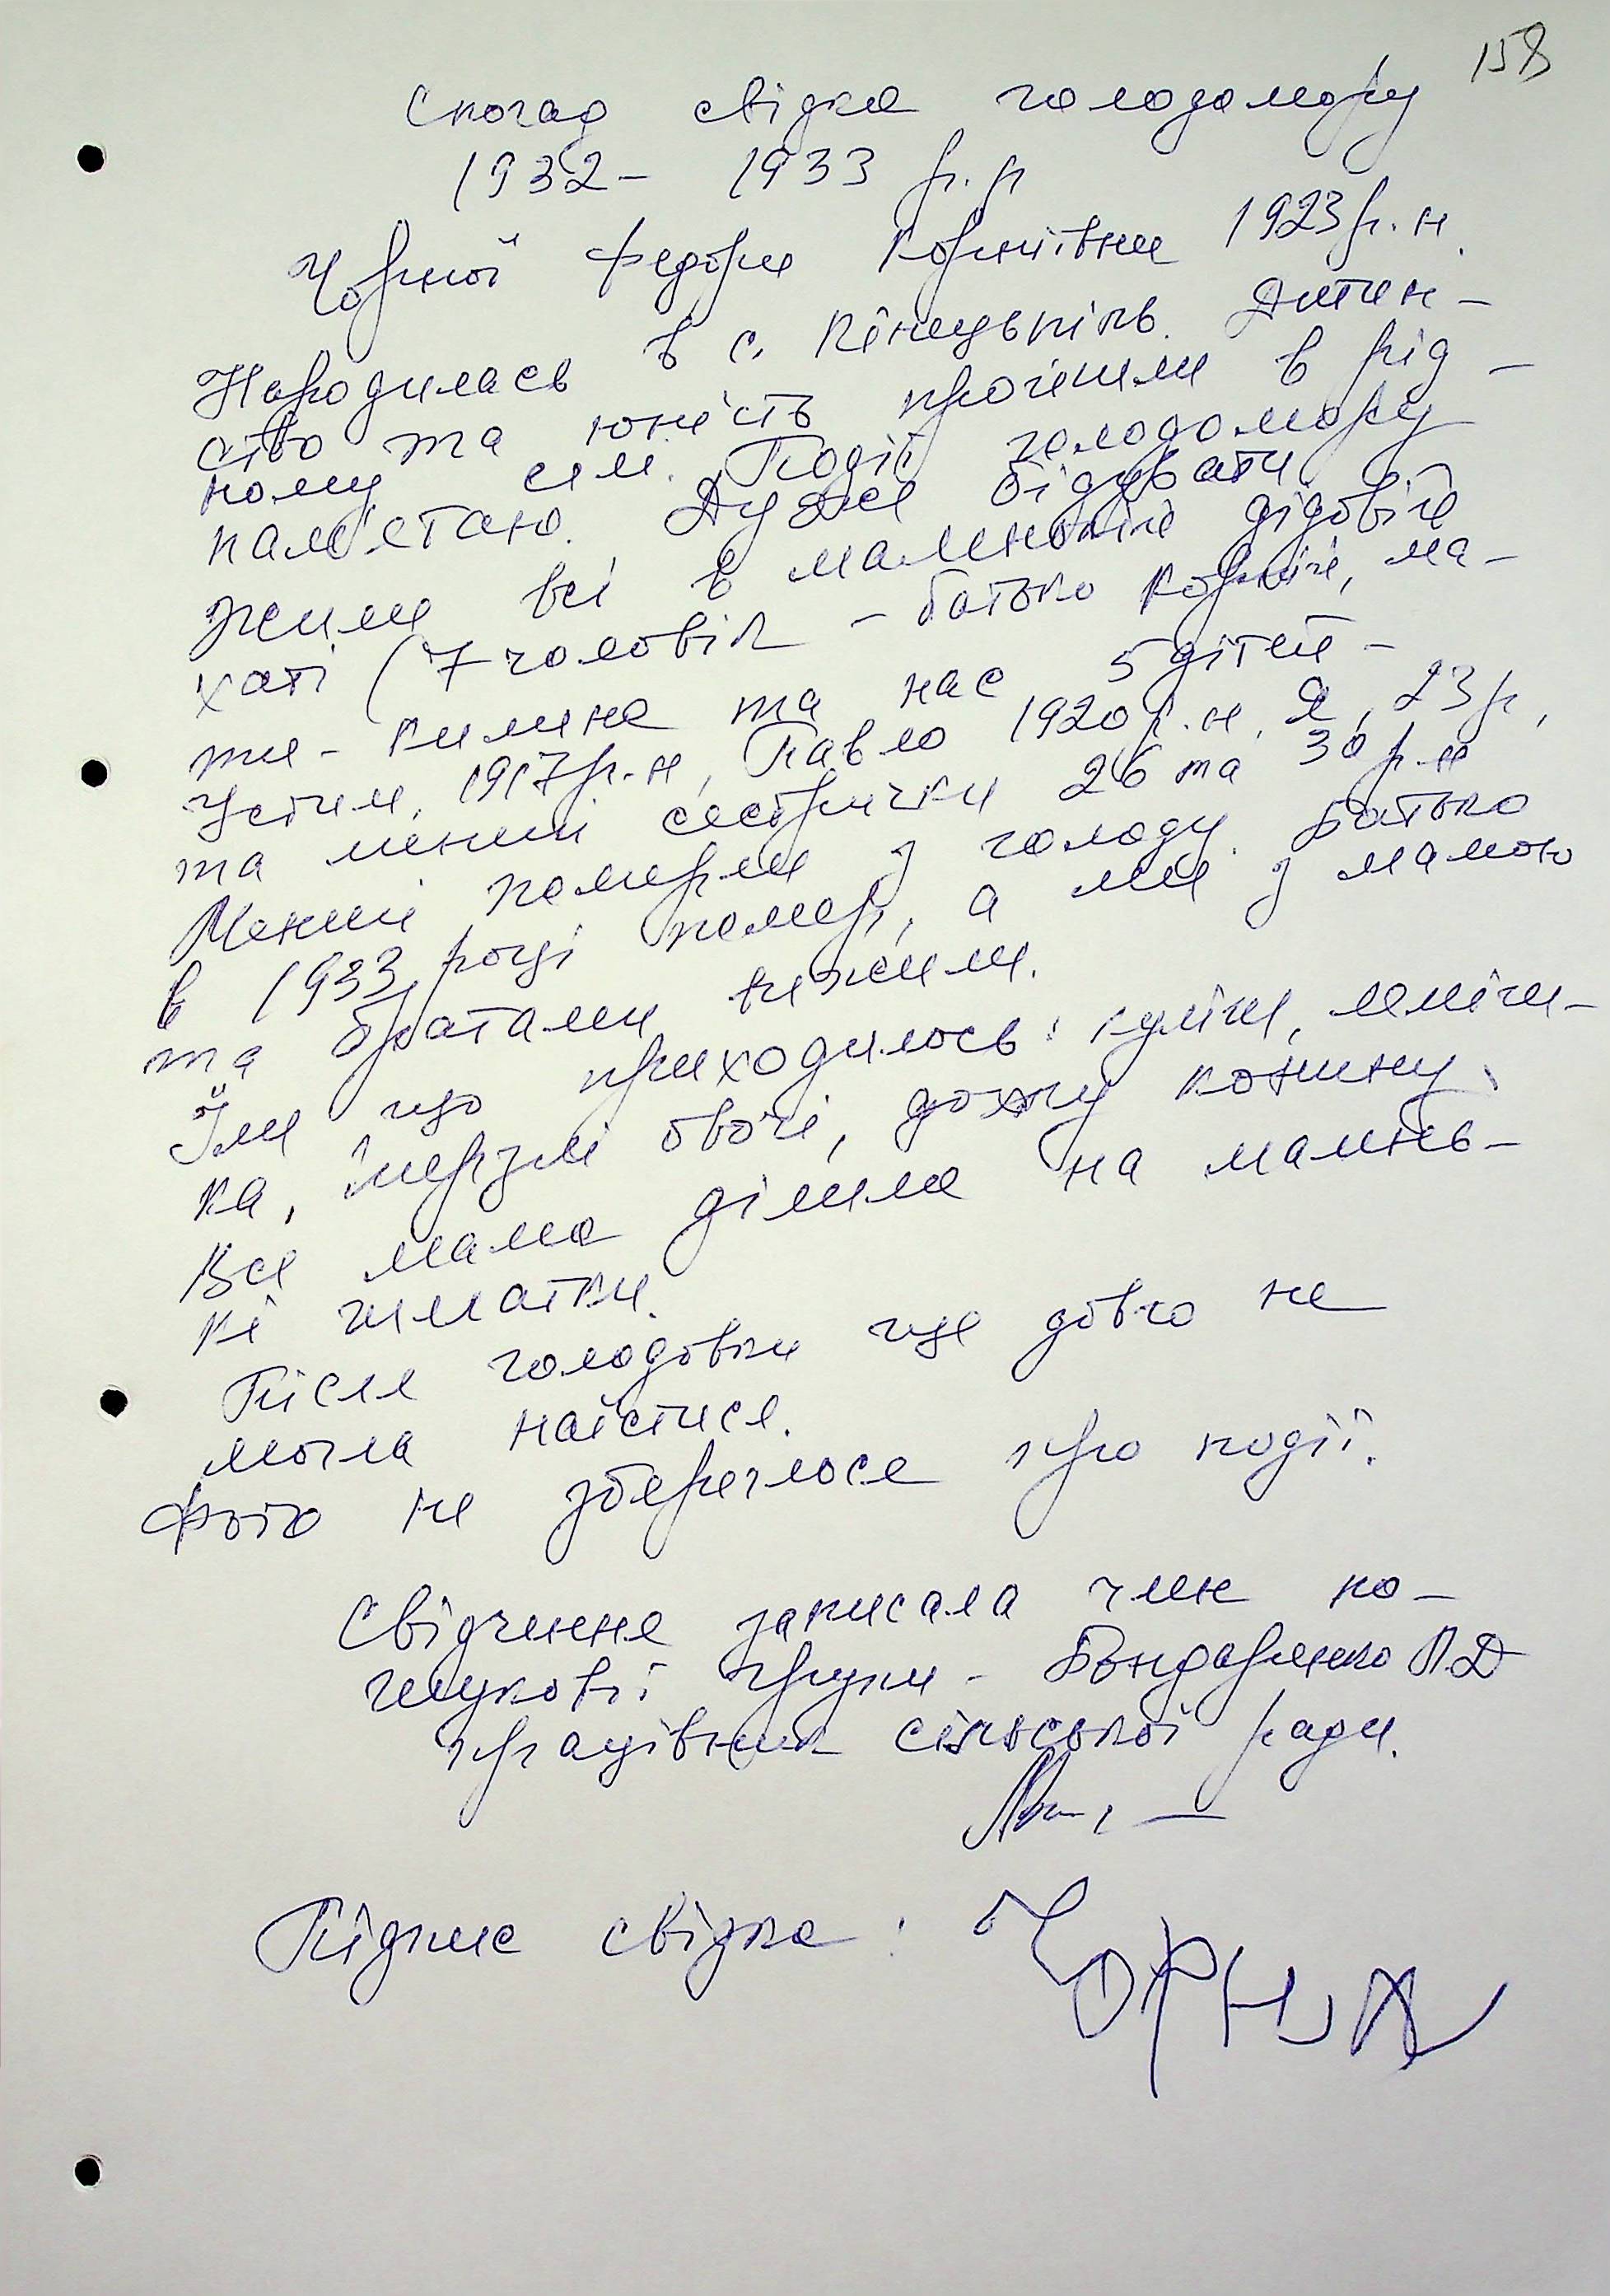 158
Спогад свідка голодомору
1932- 1933 р.р
Чорної Федори Корніївни 1923 р.н.
Народилась в с. Кінецьпіль. Дитин-
ство та юність пройшли в рід-
ному селі. Події голодомору
пам'ятаю. Дуже бідували,
жили всі в маленькій дідовій
хаті (7 чоловік - батько Корній, ма-
ти - Килина та нас 5 дітей -
Устим, 1917 р.н, Павло 1920 р.н, я, 23 р,
та менші сестрички 26 та 30 р.н
Менші померли з голоду. Батько
в 1933 році помер, а ми з мамою
та братами вижили.
Їли що приходилось: куліш, 
ка, мерзлі овочі, дохлу конину.
Все мама ділила на малень-
кі шматки.
Після голодовки ще довго не
могла наїстися.
Фото не збереглося про події.
Свідчення записала член по-
шукової групи - Бондаренко Л.Д
працівник сільської ради.
Підпис свідка: Чорна